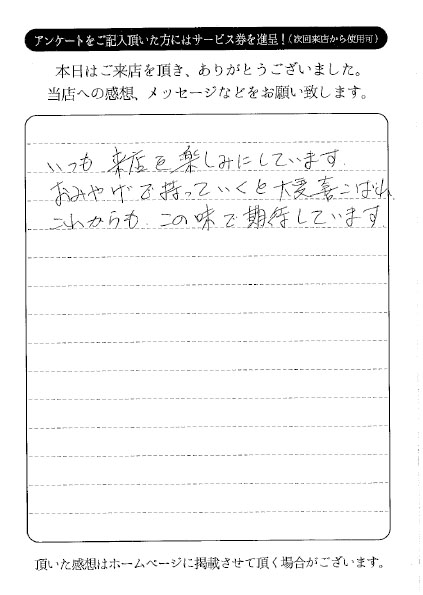 アンケートをご記入頂いた方にはサービス券を進呈！（次回来店から使用可）
本日はご来店を頂き、ありがとうございました。
当店への感想、メッセージなどをお願い致します。
いつも 来店を楽しみにしています.
おみやげで持っていくと大変喜こばれ
これからも この味で期待しています.
頂いた感想はホームページに掲載させて頂く場合がございます。